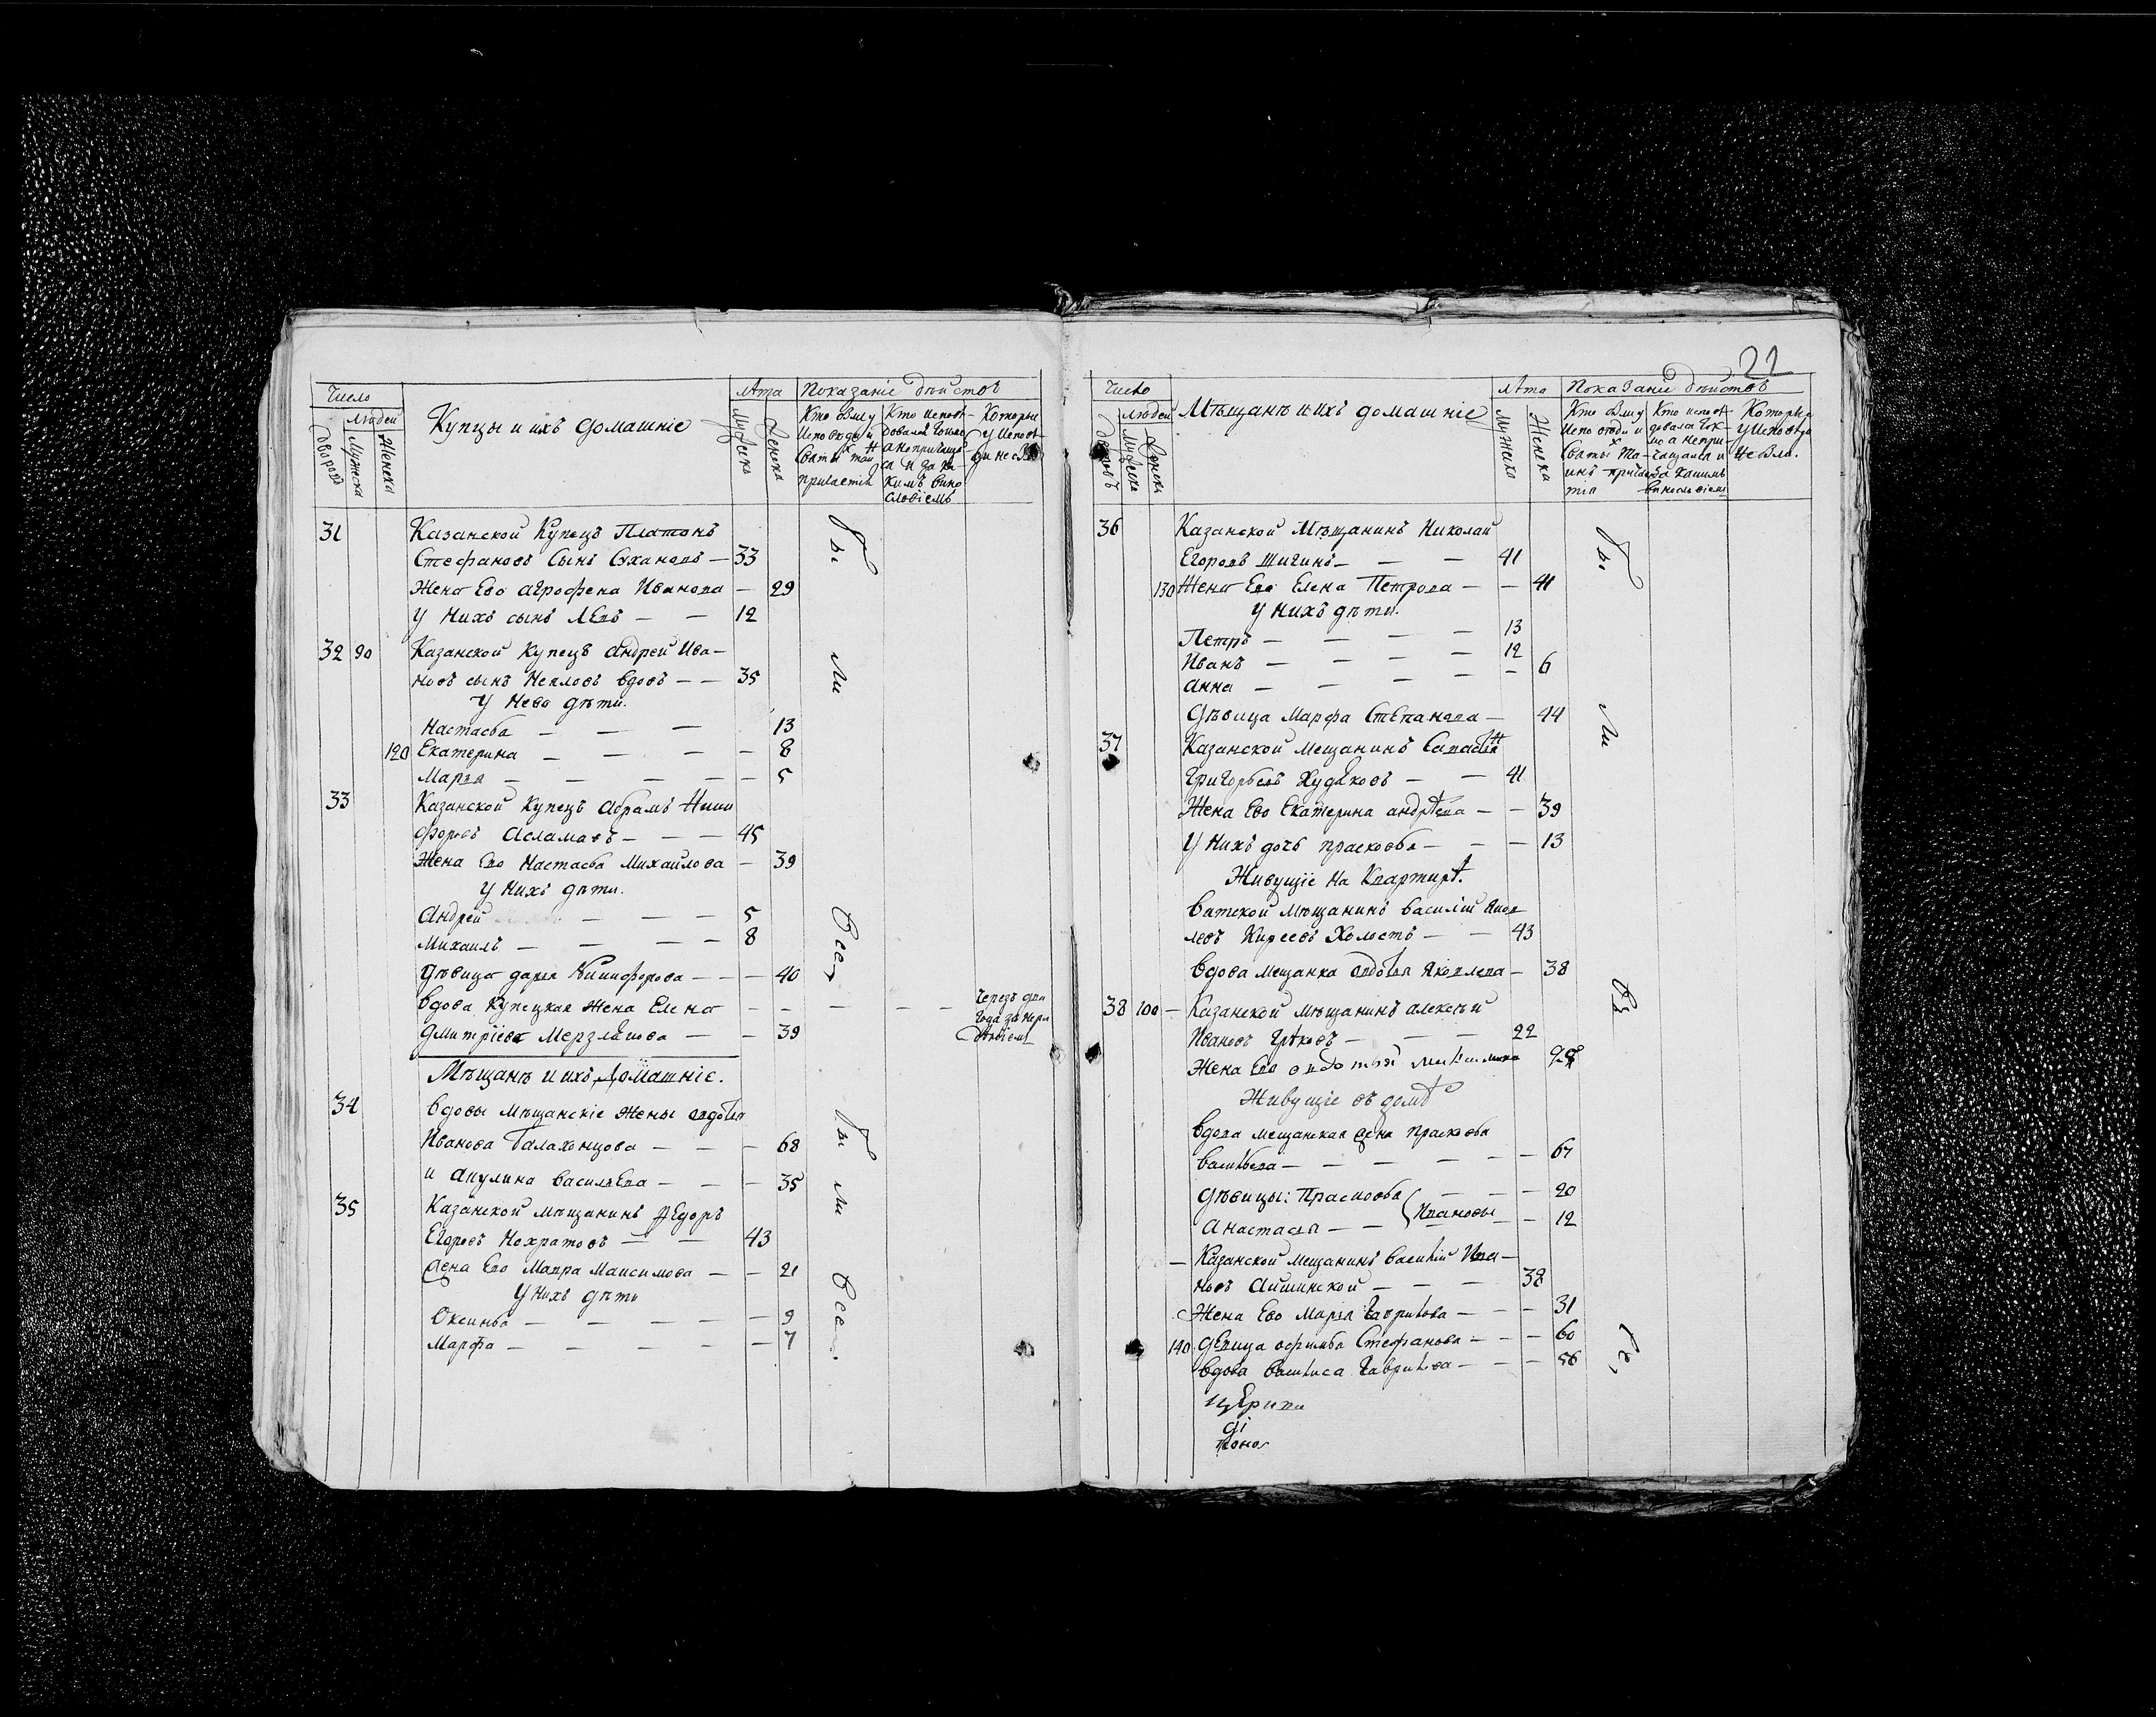 Число
Людей
Дворовъ
Мужеска
Женска
Купцы и ихъ домашніе
лѣта
Мужеска
Женска
Показаніе дѣйствъ
Кто былъ у
исповѣди и
святыхъ таинъ
причастія
Кто исповѣ-
довался только
а не причаща
ся и за ка-
кимъ вино
словіемъ
Которые
у исповѣ-
ди не были
31 Казанской Купецъ Платонъ
Стефановъ Сынъ Сухановъ — 33
Жена Ево Агрофена Иванова — 29
У Нихъ сынъ ЛЕвъ — — 12
32 90 Казанской Купецъ Андрей Ива-
новъ сынъ Некловъ вдовъ — — 35
У Нево дѣти.
Настасья — — — 13
120 Екатерина — — — — 8
Марья — — — — — 5
33 Казанской Купецъ Абрамъ Ники
форовъ Асламовъ — — — 45
Жена Ево Настасья Михайлова — 39
У Нихъ дѣти.
Андрей — — — 5
Михаилъ — — — — 8
Дѣвица дарья Никифорова — — — 40
Вдова Купецкая Жена Елена — — — — —
Дмитріева Мерзлякова — — 39
Черезъ два
года за нера
дѣніемъ
бы
ли
вси
Мѣщанѣ и ихъ домашніе.
34 Вдовы Мѣщанскіе Жены Авдотья
Иванова Галахонцова — — — 68
и Акулина Васильева — — — 35
35 Казанской мѣщанинъ ѲЕдоръ
Егоровъ Нохратовъ — — 43
Жена Ево Мавра Максимова — — 21
У Нихъ дѣти
Оксинья — — — — — 9
Марфа — — — — — 7
бы
ли
вси.
22
Число
Людей
Дворовъ
Мужеска
Женска
Мѣщанѣ и ихъ домашніе
лѣта
Мужеска
Женска
Показаніе дѣйствъ
Кто былъ у
исповѣди и
святыхъ та-
инъ причас
тія
Кто исповѣ-
довался ток-
мо а непри-
чащался и
за какимъ
винословіемъ
Которые
у исповѣди
не были.
36 Казанской Мѣщанинъ Николай
Егоровъ Шигинъ — — — 41
130 Жена Ево Елена Петрова — — 41
У Нихъ дѣти.
Петръ — — — — 13
Иванъ — — — — 12
Анна — — — — — 6
Дѣвица Марфа СтЕпанова — 44
37 Казанской мещанинъ Савастьян
Григорьевъ Худяковъ — — 41
Жена Ево Екатерина андрѣева — — 39
У Нихъ дочь прасковья — — — 13
Живущіе на Квартирѣ.
Вятской Мѣщанинъ Василій Яков
левъ Киреевъ Холостъ — — 43
Вдова мещанка Авдотья Яковлева — 38
38 100 — Казанской мѣщанинъ алексѣй
Ивановъ Грѣковъ — — — 22
Жена Ево
Живущіе въ домѣ
Вдова мещанская Жена Прасковья
Васильева — — — — — — 67
Дѣвицы: Прасковья — — — 20
Ивановы
Анастасья — — — — 12
— Казанской мещанинъ Василій Ива-
новъ Айшинской — — — 38
Жена Ево Марья Гаврилова — — — 31
140 ДЕвица офимья Стефанова — — — 60
Вдова Василиса Гаврилова — — — 56
бы
ли
вси